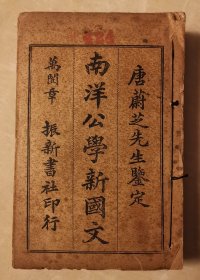 唐蔚芝先生鑒定
南洋公學新國文
振新書社印行